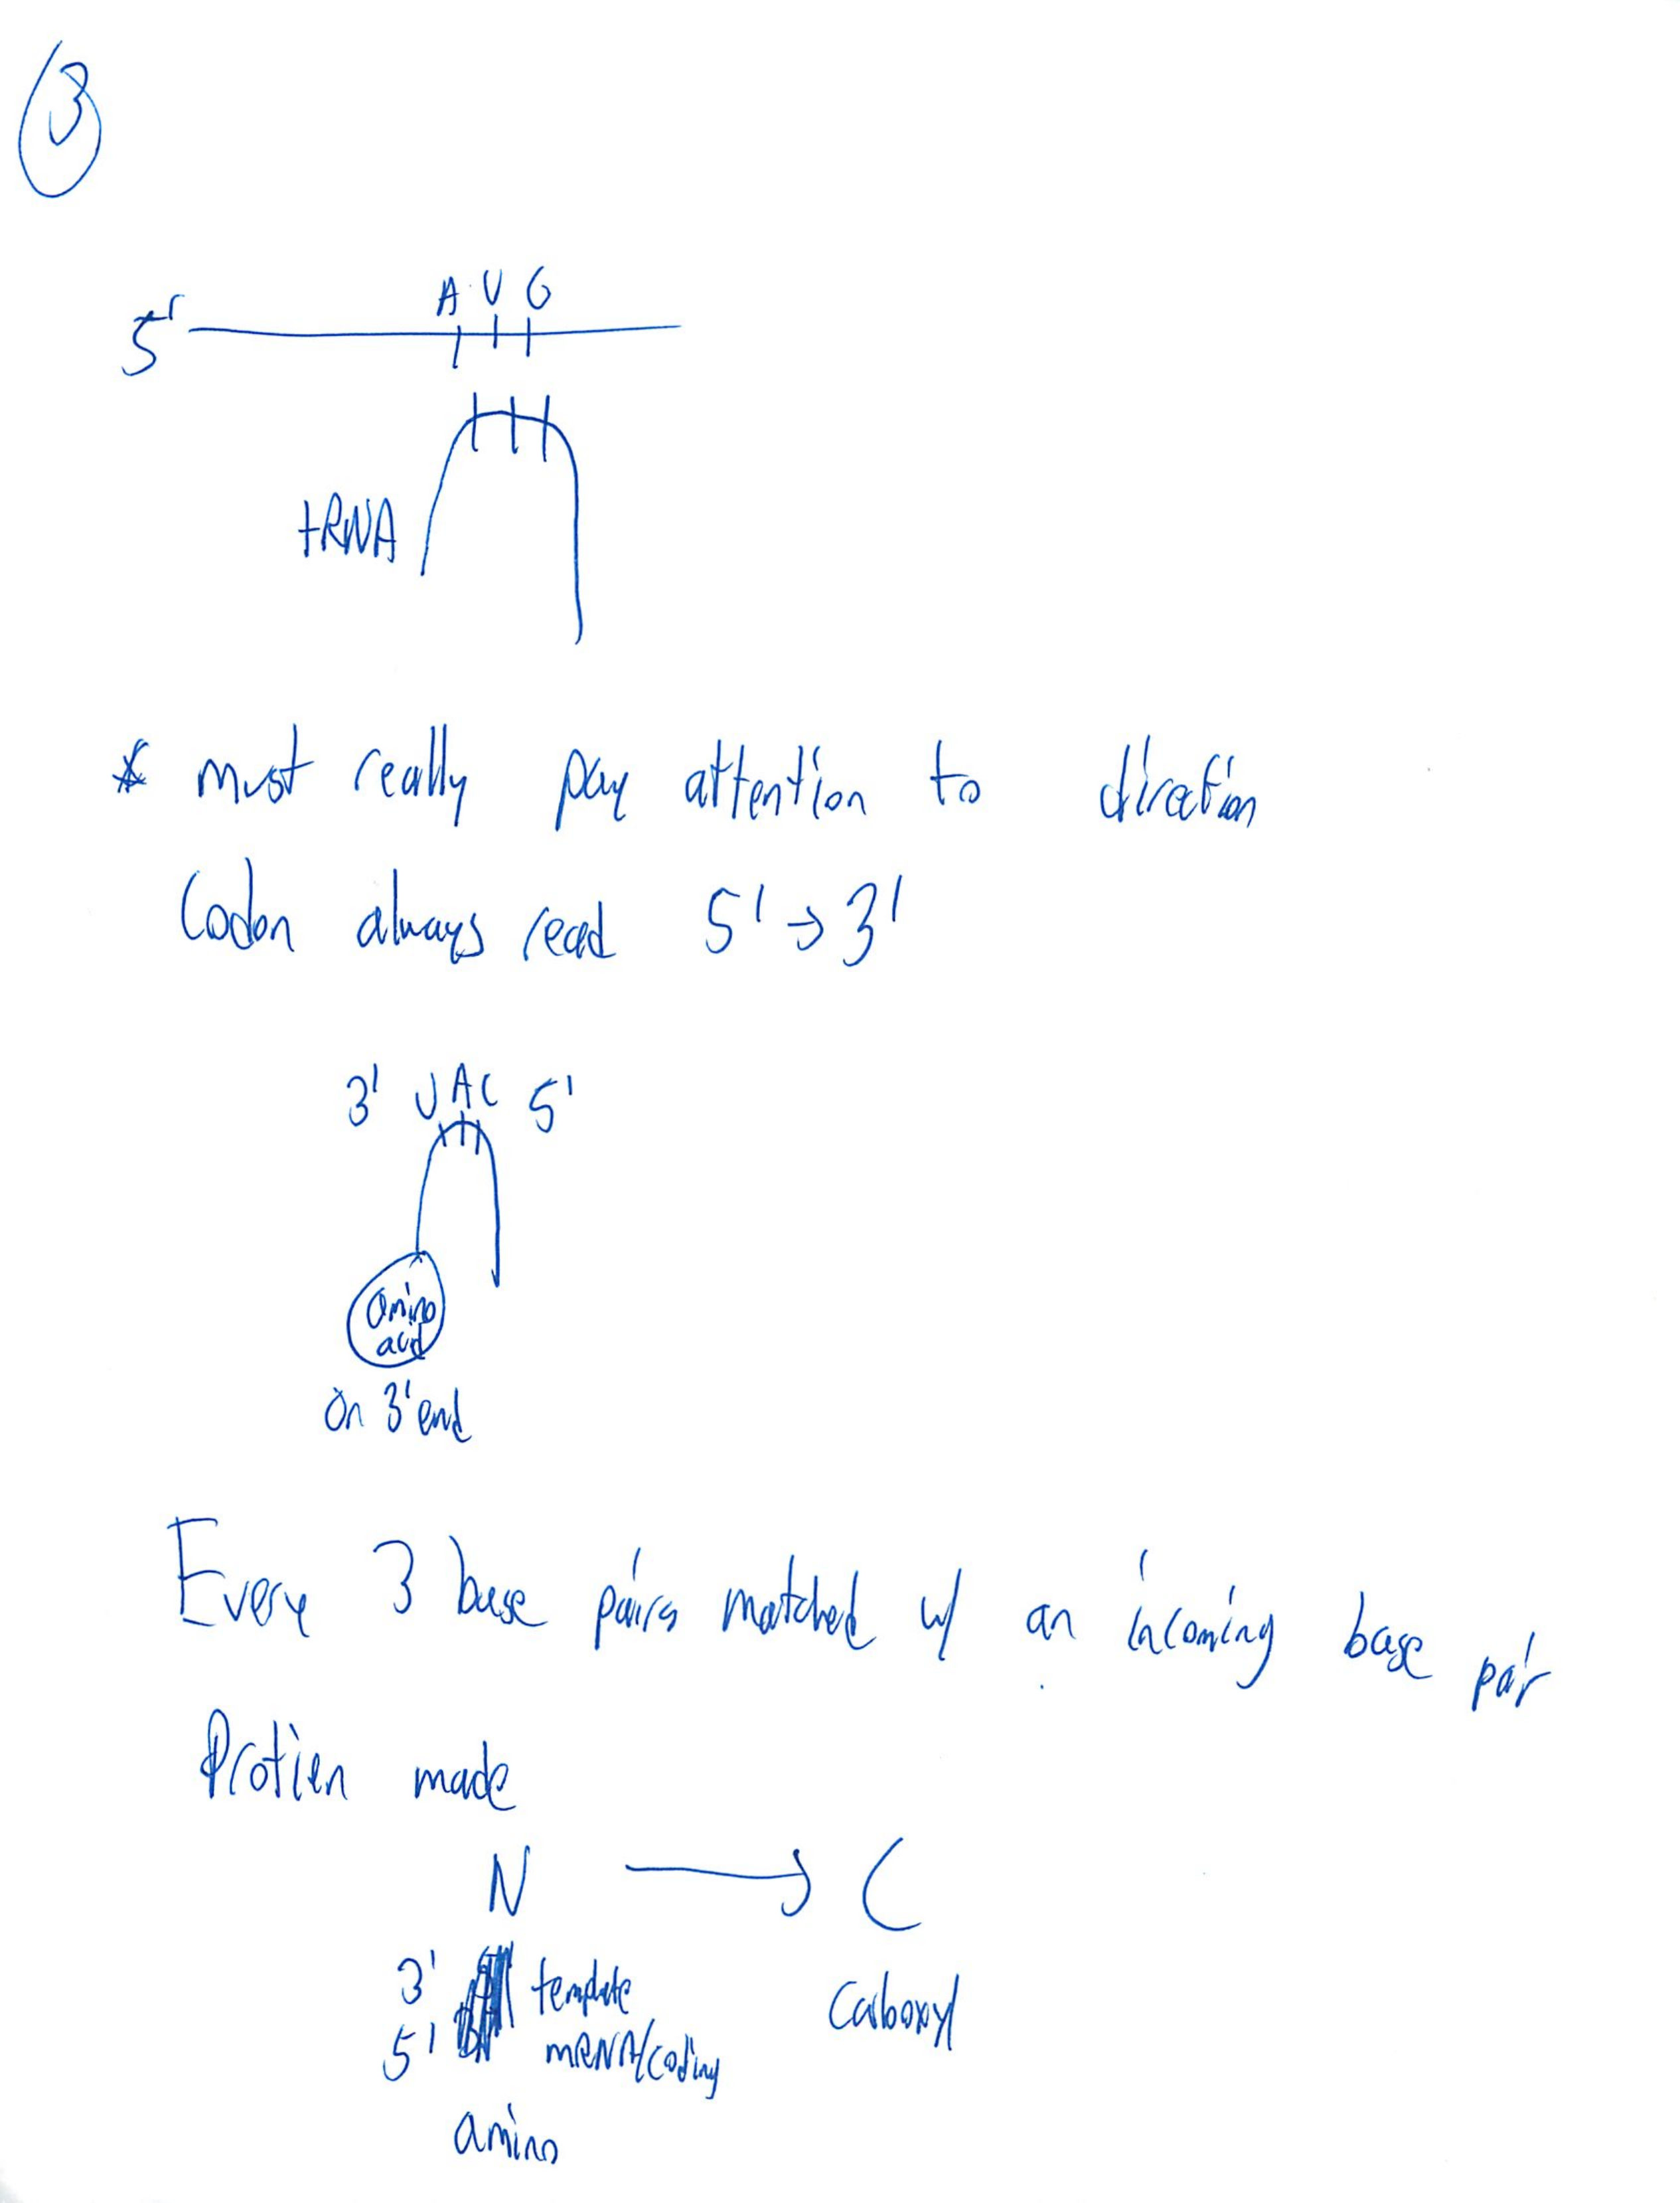 3
A U G
5'
tRNA
* must really pay attention to direction
Codon always read 5' → 3'
3' UAC 5'
amino
acid
on 3' end
Every 3 base pairs matched w/ an incoming base pair
Protien made
N → C
3' template
5' mRNA/coding
Carboxy
amino